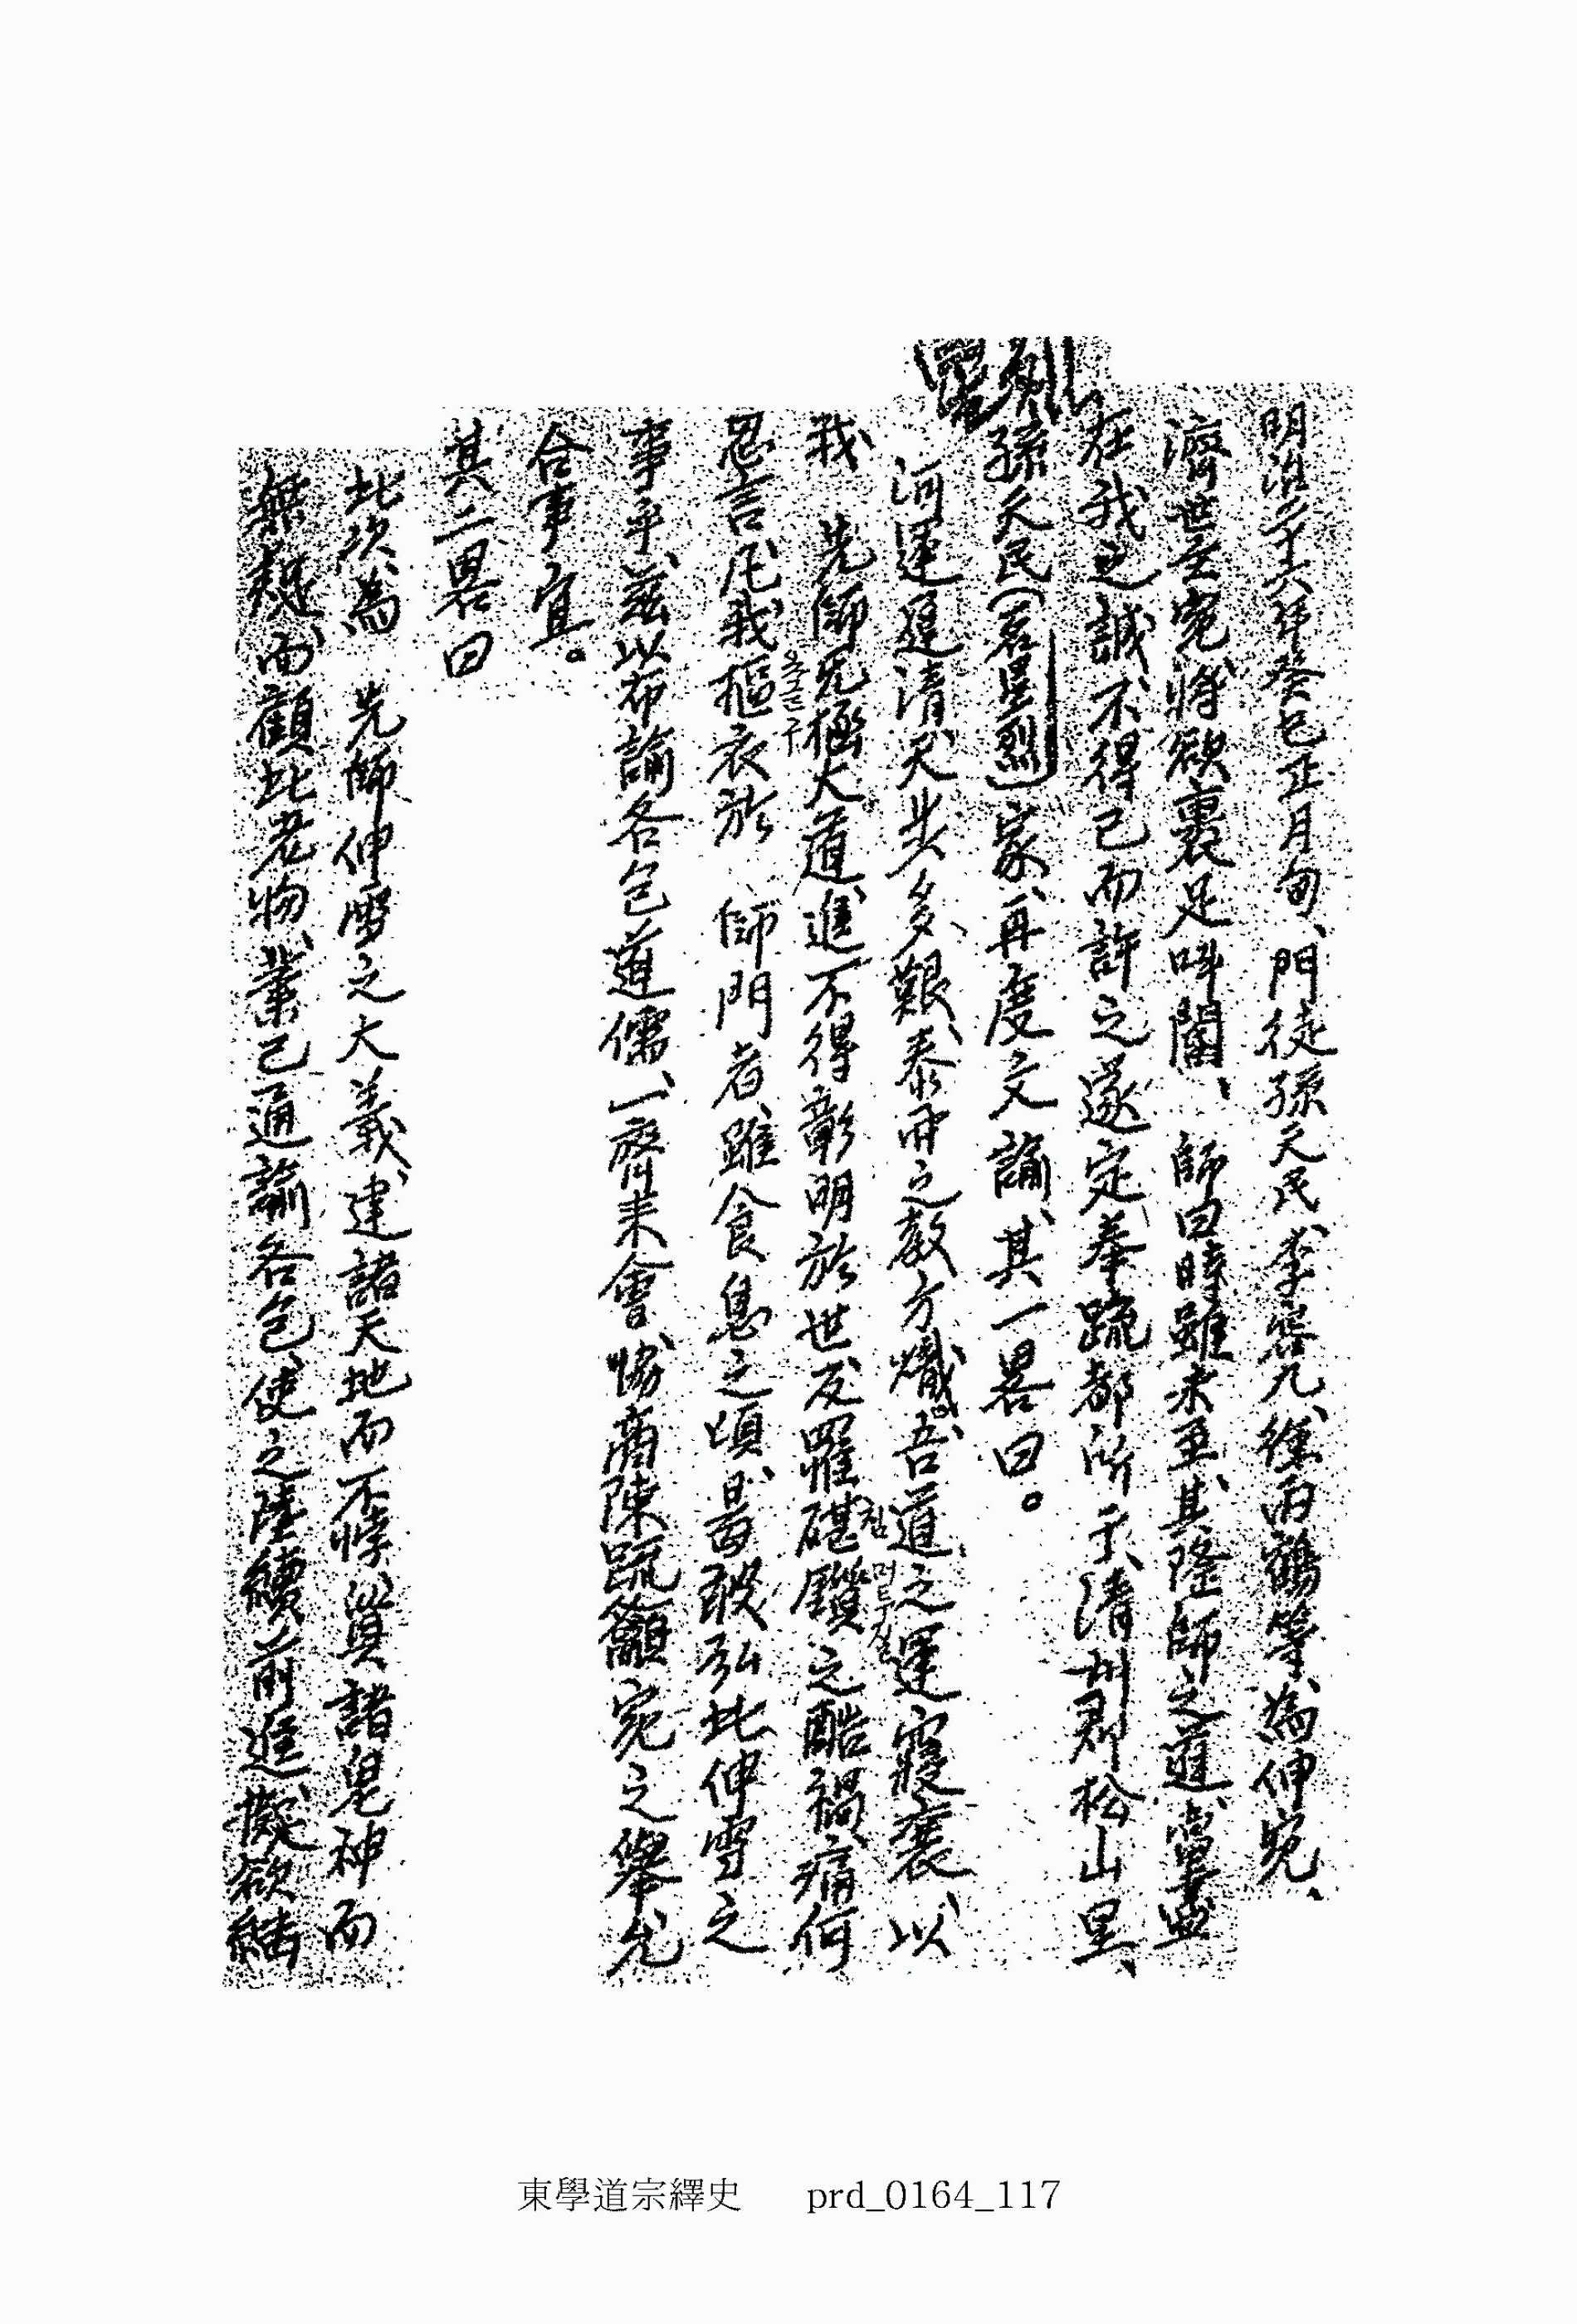 明治二十六年癸巳正月旬、門徒孫天民、李容九、徐丙鶴等、爲伸寃、
濟世至寃、將欲裹足叫閽、 師曰時雖未至、其隆師之道、當單盡
在我之誠、不得已而許之、遂定奉䟽都所于、淸州郡松山里、
孫天民(君星烈)家、再度文諭、其一畧曰。
烈
河運遲淸、天步多艱、泰西之敎方熾、吾道之運寢衰、以
我 先師无極大道、進不得彰明於世、反罹碪鑕之酷禍、痛何
침 떡도질
忍言、凡我摳衣於 師門者、雖食息之頃、曷敢弘此伸雪之
옷글구
事乎、玆以布諭各包道儒、一齊來會、協商陳䟽籲寃之擧、允
合事宜。
其二畧曰
此次爲 先師伸雪之大義、建諸天地而不悖、質諸鬼神而
無疑、而顧此老物、業已通諭各包、使之陸續前進、擬欲結